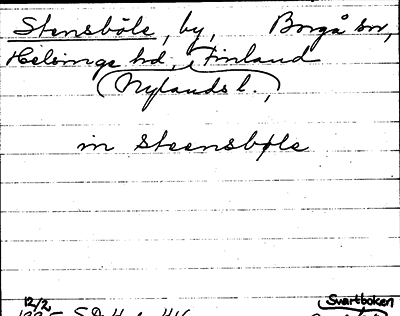 Stensböle, by, Borgå sn,
Helsinge hd, Finland
(Nylands l.,
in Steensbøle
12/2 Svartboken